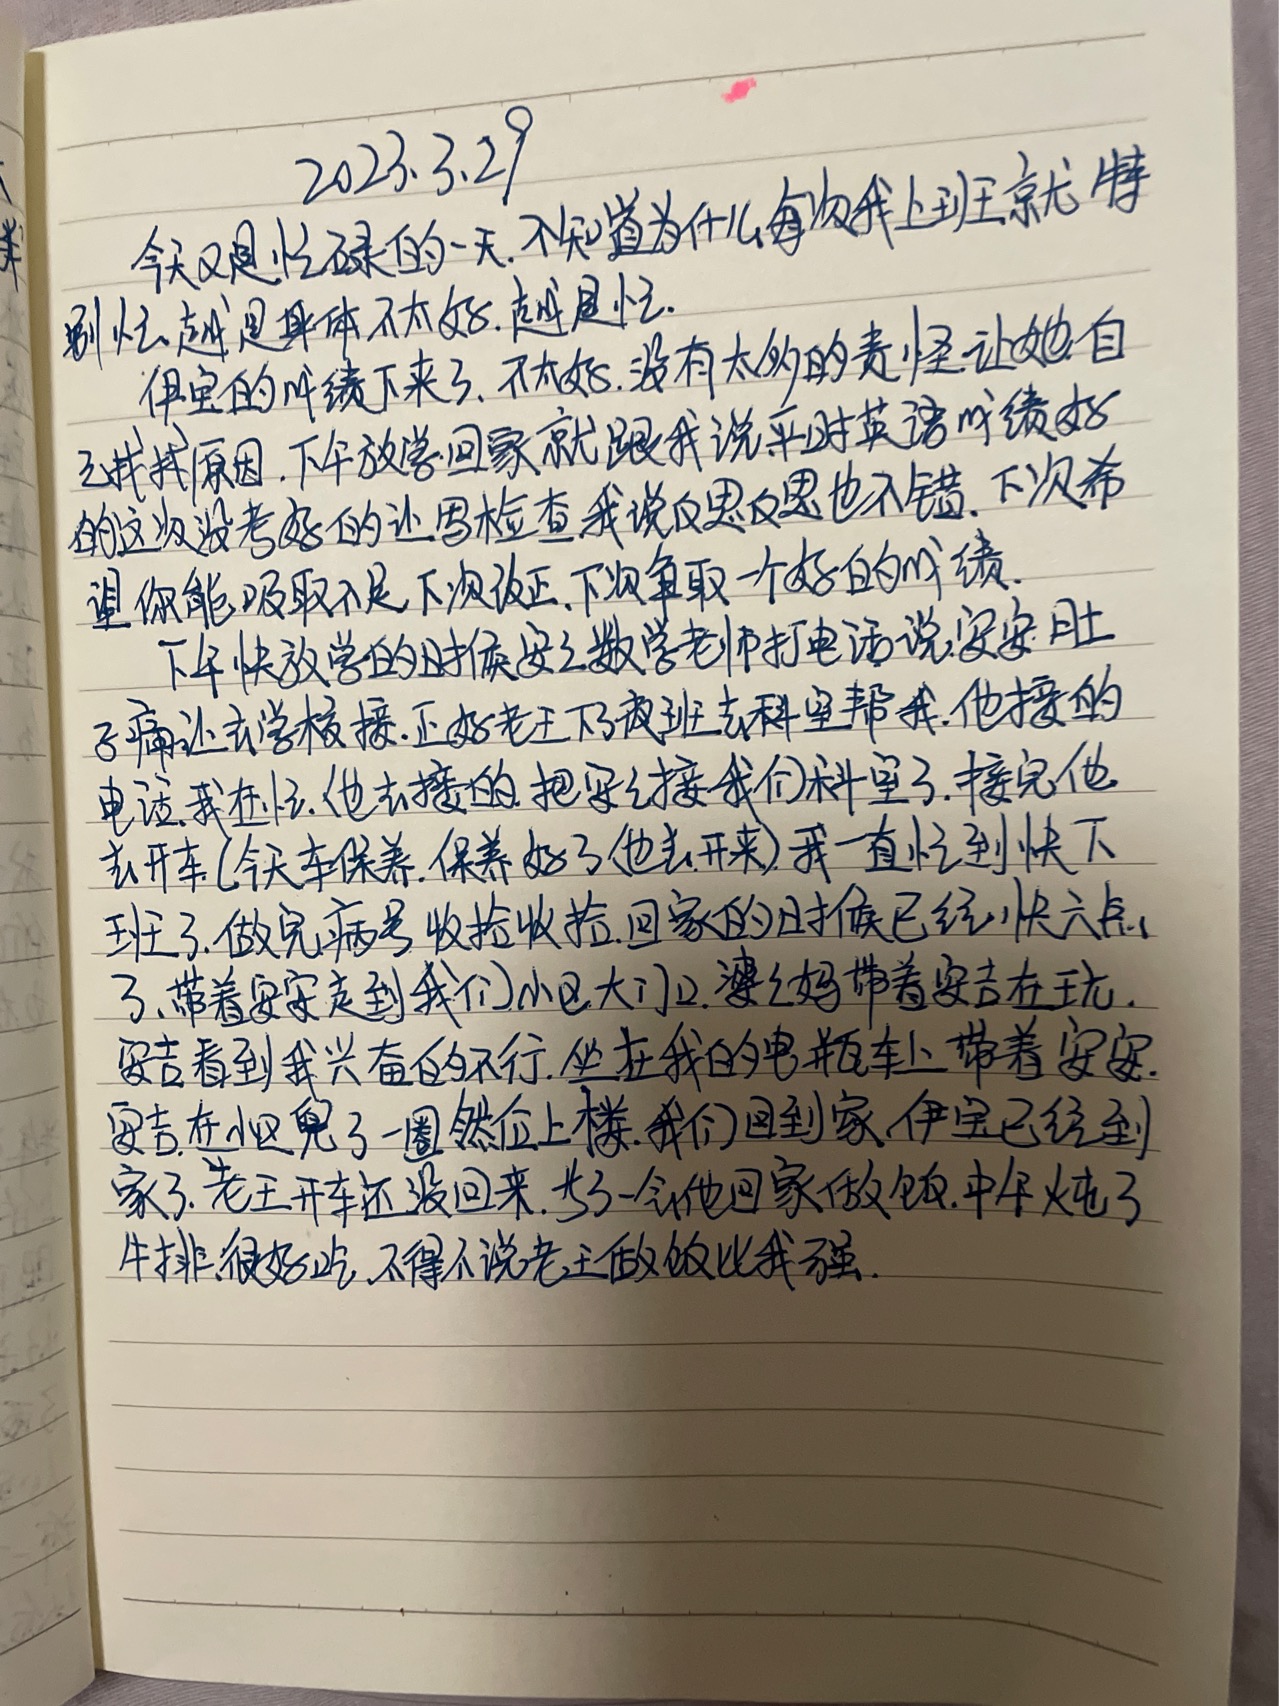 2023.3.29
今天又是忙碌的一天.不知道为什么每次我上班就特
别忙.越是身体不太好.越是忙.
伊宝的成绩下来了.不太好.没有太多的责怪.让她自
己找找原因.下午放学回家就跟我说平时英语成绩好
的这次没考好的还写检查.我说反思反思也不错.下次希
望你能吸取不足下次改正.下次争取一个好的成绩.
下午快放学的时候安安数学老师打电话说.安安肚
子痛.让去学校接.正好老王下了夜班去科室帮我.他接的
电话.我在忙.他去接的.把安安接我们科室了.接完他
去开车(今天车保养.保养好了他去开来).我一直忙到快下
班了.做完病号收拾收拾.回家的时候已经快六点
了.带着安安走到我们小区大门口.婆婆妈带着安吉在玩.
安吉看到我兴奋的不行.坐在我的电瓶车上带着安安.
安吉在小区兜了一圈然后上楼.我们回到家.伊宝已经到
家了.老王开车还没回来.过了一会他回家做饭.中午炖了
牛排.很好吃.不得不说老王做饭比我强.